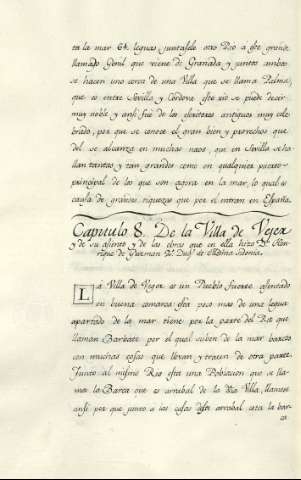 ta la mar 64 leguas juntasele otro Rio a este grande
llamado Genil que viene de Granada, y juntos ambos
se hacen uno cerca de una Villa que se llama Palma,
que es entre Sevilla y Cordova este rio se puede decir
muy noble y ansi fue de los escritores antiguos muy cele
brado, por que se conoce el gran bien y provechos que
del se alcanza en muchas naos, que en Sevilla se ha
llan tantas y tan grandes como en qualquier puerto
principal de los que son agora en la mar, lo qual es
causa de grandes riquezas que por el entran en España.
Capitulo 8. De la Villa de Vejer
y de su asiento y de las obras que en ella hizo Dn. Hen
rique de Guzman 2º Duqe. de Medina sidonia.
La Villa de Vejer es un Pueblo fuerte asentado
en buena comarca esta poco mas de una legua
apartado de la mar tiene por la parte del Rio que
llaman Barbate por el qual suben de la mar barcos
con muchas cosas que llevan y traen de otra parte.
Junto al mismo Rio esta una Poblacion que se lla
ma la Barca que es arrabal de la dha Villa, llamase
ansi por que junto a las casas deste arrabal esta la bar
ca